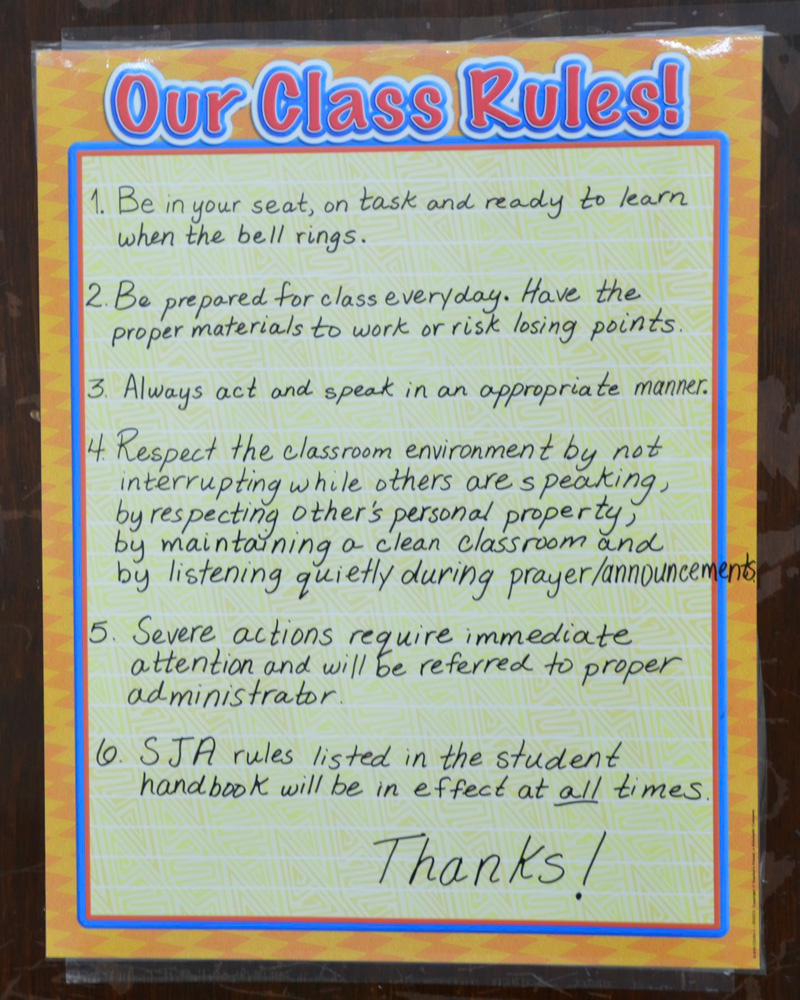 Our Class Rules!
1. Be in your seat, on task and ready to learn
when the bell rings.
2. Be prepared for class everyday. Have the
proper materials to work or risk losing points.
3. Always act and speak in an appropriate manner.
4. Respect the classroom environment by not
interrupting while others are speaking,
by respecting other's personal property,
by maintaining a clean classroom and
by listening quietly during prayer/announcements.
5. Severe actions require immediate
attention and will be referred to proper
administrator.
6. SJA rules listed in the student
handbook will be in effect at all times.
Thanks!